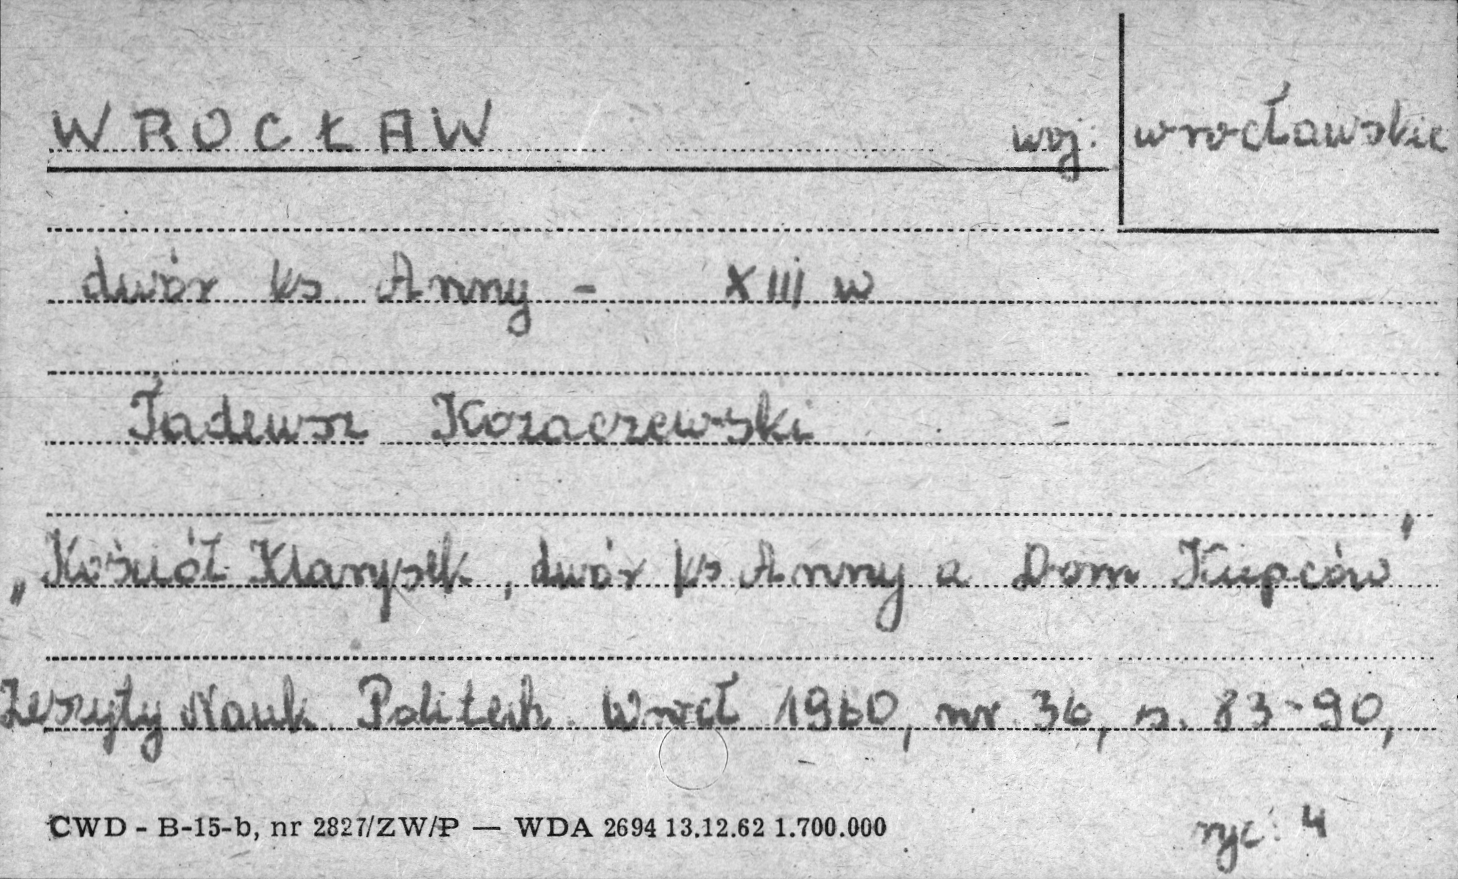 WROCŁAW woj: wrocławskie
dwór ks Anny - XIII w
Tadeusz Kozaczewski
„Kościół Klarysek, dwór ks Anny a Dom Kupców"
Zeszyty Nauk. Politech. Wrocł 1960, nr 36, s. 83-90,
CWD - B-15-b, nr 2827/ZW/P — WDA 2694 13.12.62 1.700.000
ryc: 4